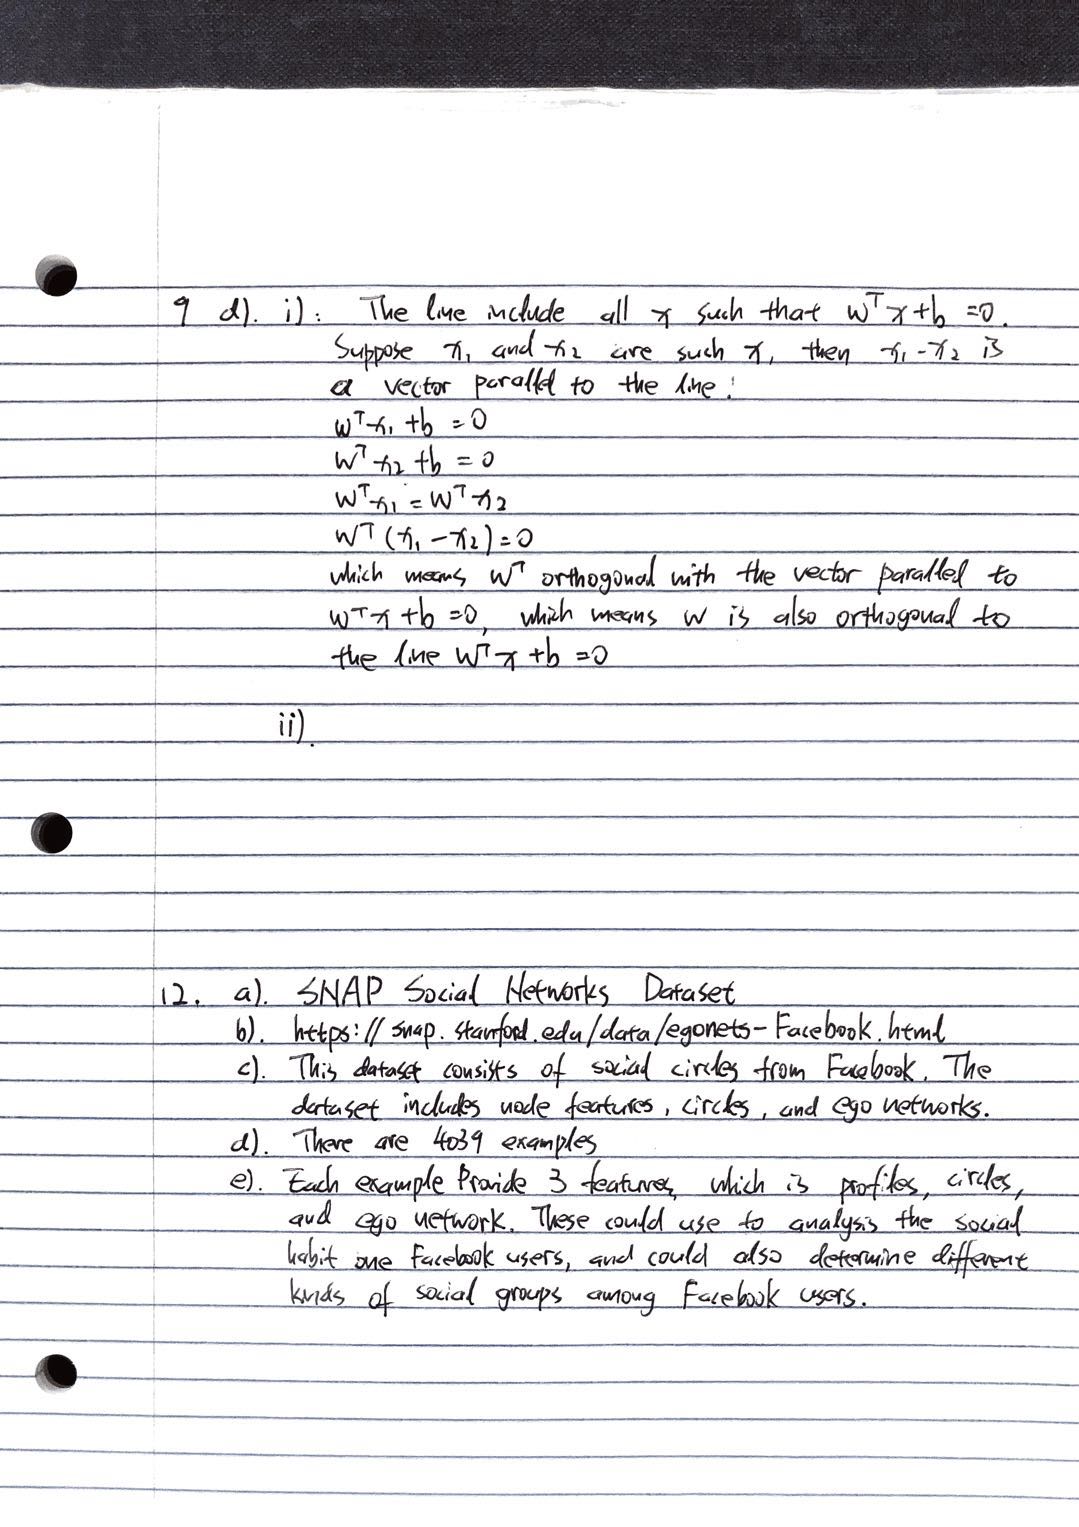 9 d). i): The line include all x such that wᵀx+b =0.
Suppose x₁ and x₂ are such x, then x₁-x₂ is
a vector parallel to the line:
wᵀx₁ +b =0
wᵀx₂ +b =0
wᵀx₁ = wᵀx₂
wᵀ(x₁ -x₂)=0
which means wᵀ orthogonal with the vector parallel to
wᵀx +b =0, which means w is also orthogonal to
the line wᵀx +b =0
ii).
12. a). SNAP Social Networks Dataset
b). https://snap.stanford.edu/data/egonets-Facebook.html
c). This dataset consists of social circles from Facebook. The
dataset includes node features, circles, and ego networks.
d). There are 4039 examples
e). Each example Provide 3 features, which is profiles, circles,
and ego network. These could use to analysis the social
habit one Facebook users, and could also determine different
kinds of social groups among Facebook users.